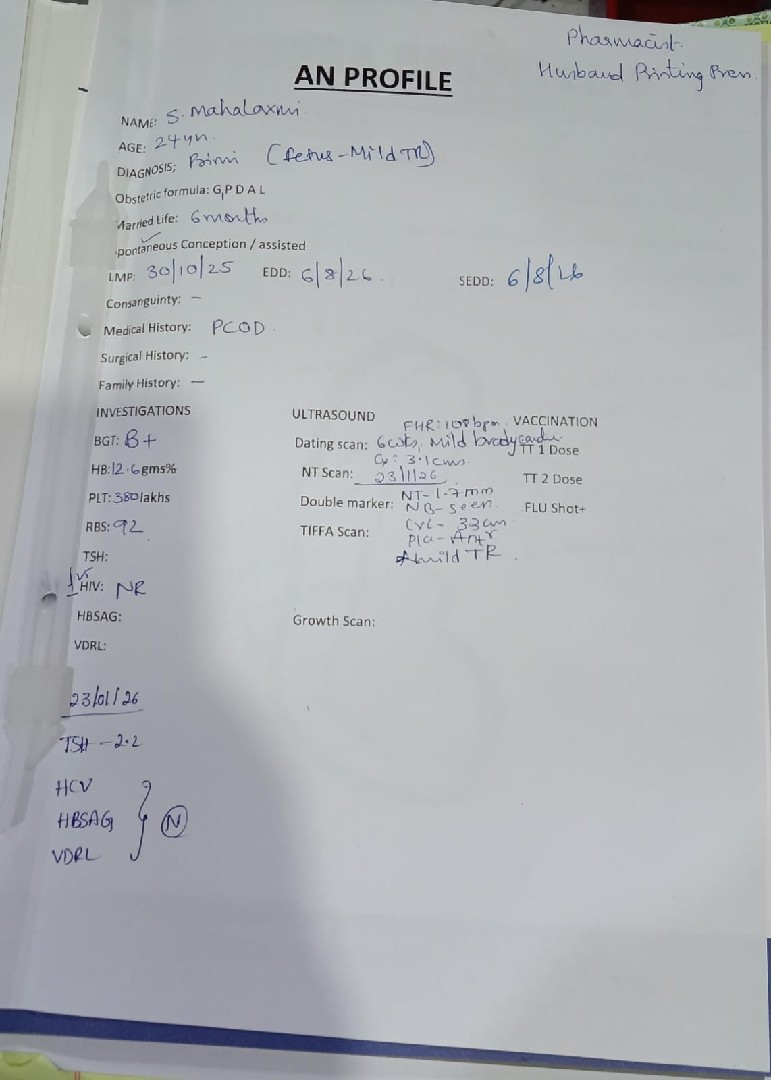 Pharmacist.
Husband Printing Press.
AN PROFILE
NAME: S. Mahalaxmi
AGE: 24 yrs.
DIAGNOSIS: Primi (fetus - Mild TR)
Obstetric formula: G1 P D A L
Married Life: 6 months
pontaneous Conception / assisted
LMP: 30/10/25 EDD: 6/8/26. SEDD: 6/8/26
Consanguinty: -
Medical History: PCOD
Surgical History: -
Family History: -
INVESTIGATIONS
BGT: B+
HB: 12.6 gms%
PLT: 380 lakhs
RBS: 92
TSH:
HIV: NR
HBSAG:
VDRL:
23/01/26
TSH - 2.2
HCV
HBSAG
VDRL
N
ULTRASOUND
FHR: 108 bpm.
Dating scan: 6 wks, Mild bradycardia
Cx: 3.1 cms
NT Scan: 23/1/26
NT - 1.7 mm
Double marker: NB - seen.
CVL - 3.3 cm
TIFFA Scan: Pla - Antr
mild TR.
Growth Scan:
VACCINATION
TT 1 Dose
TT 2 Dose
FLU Shot+